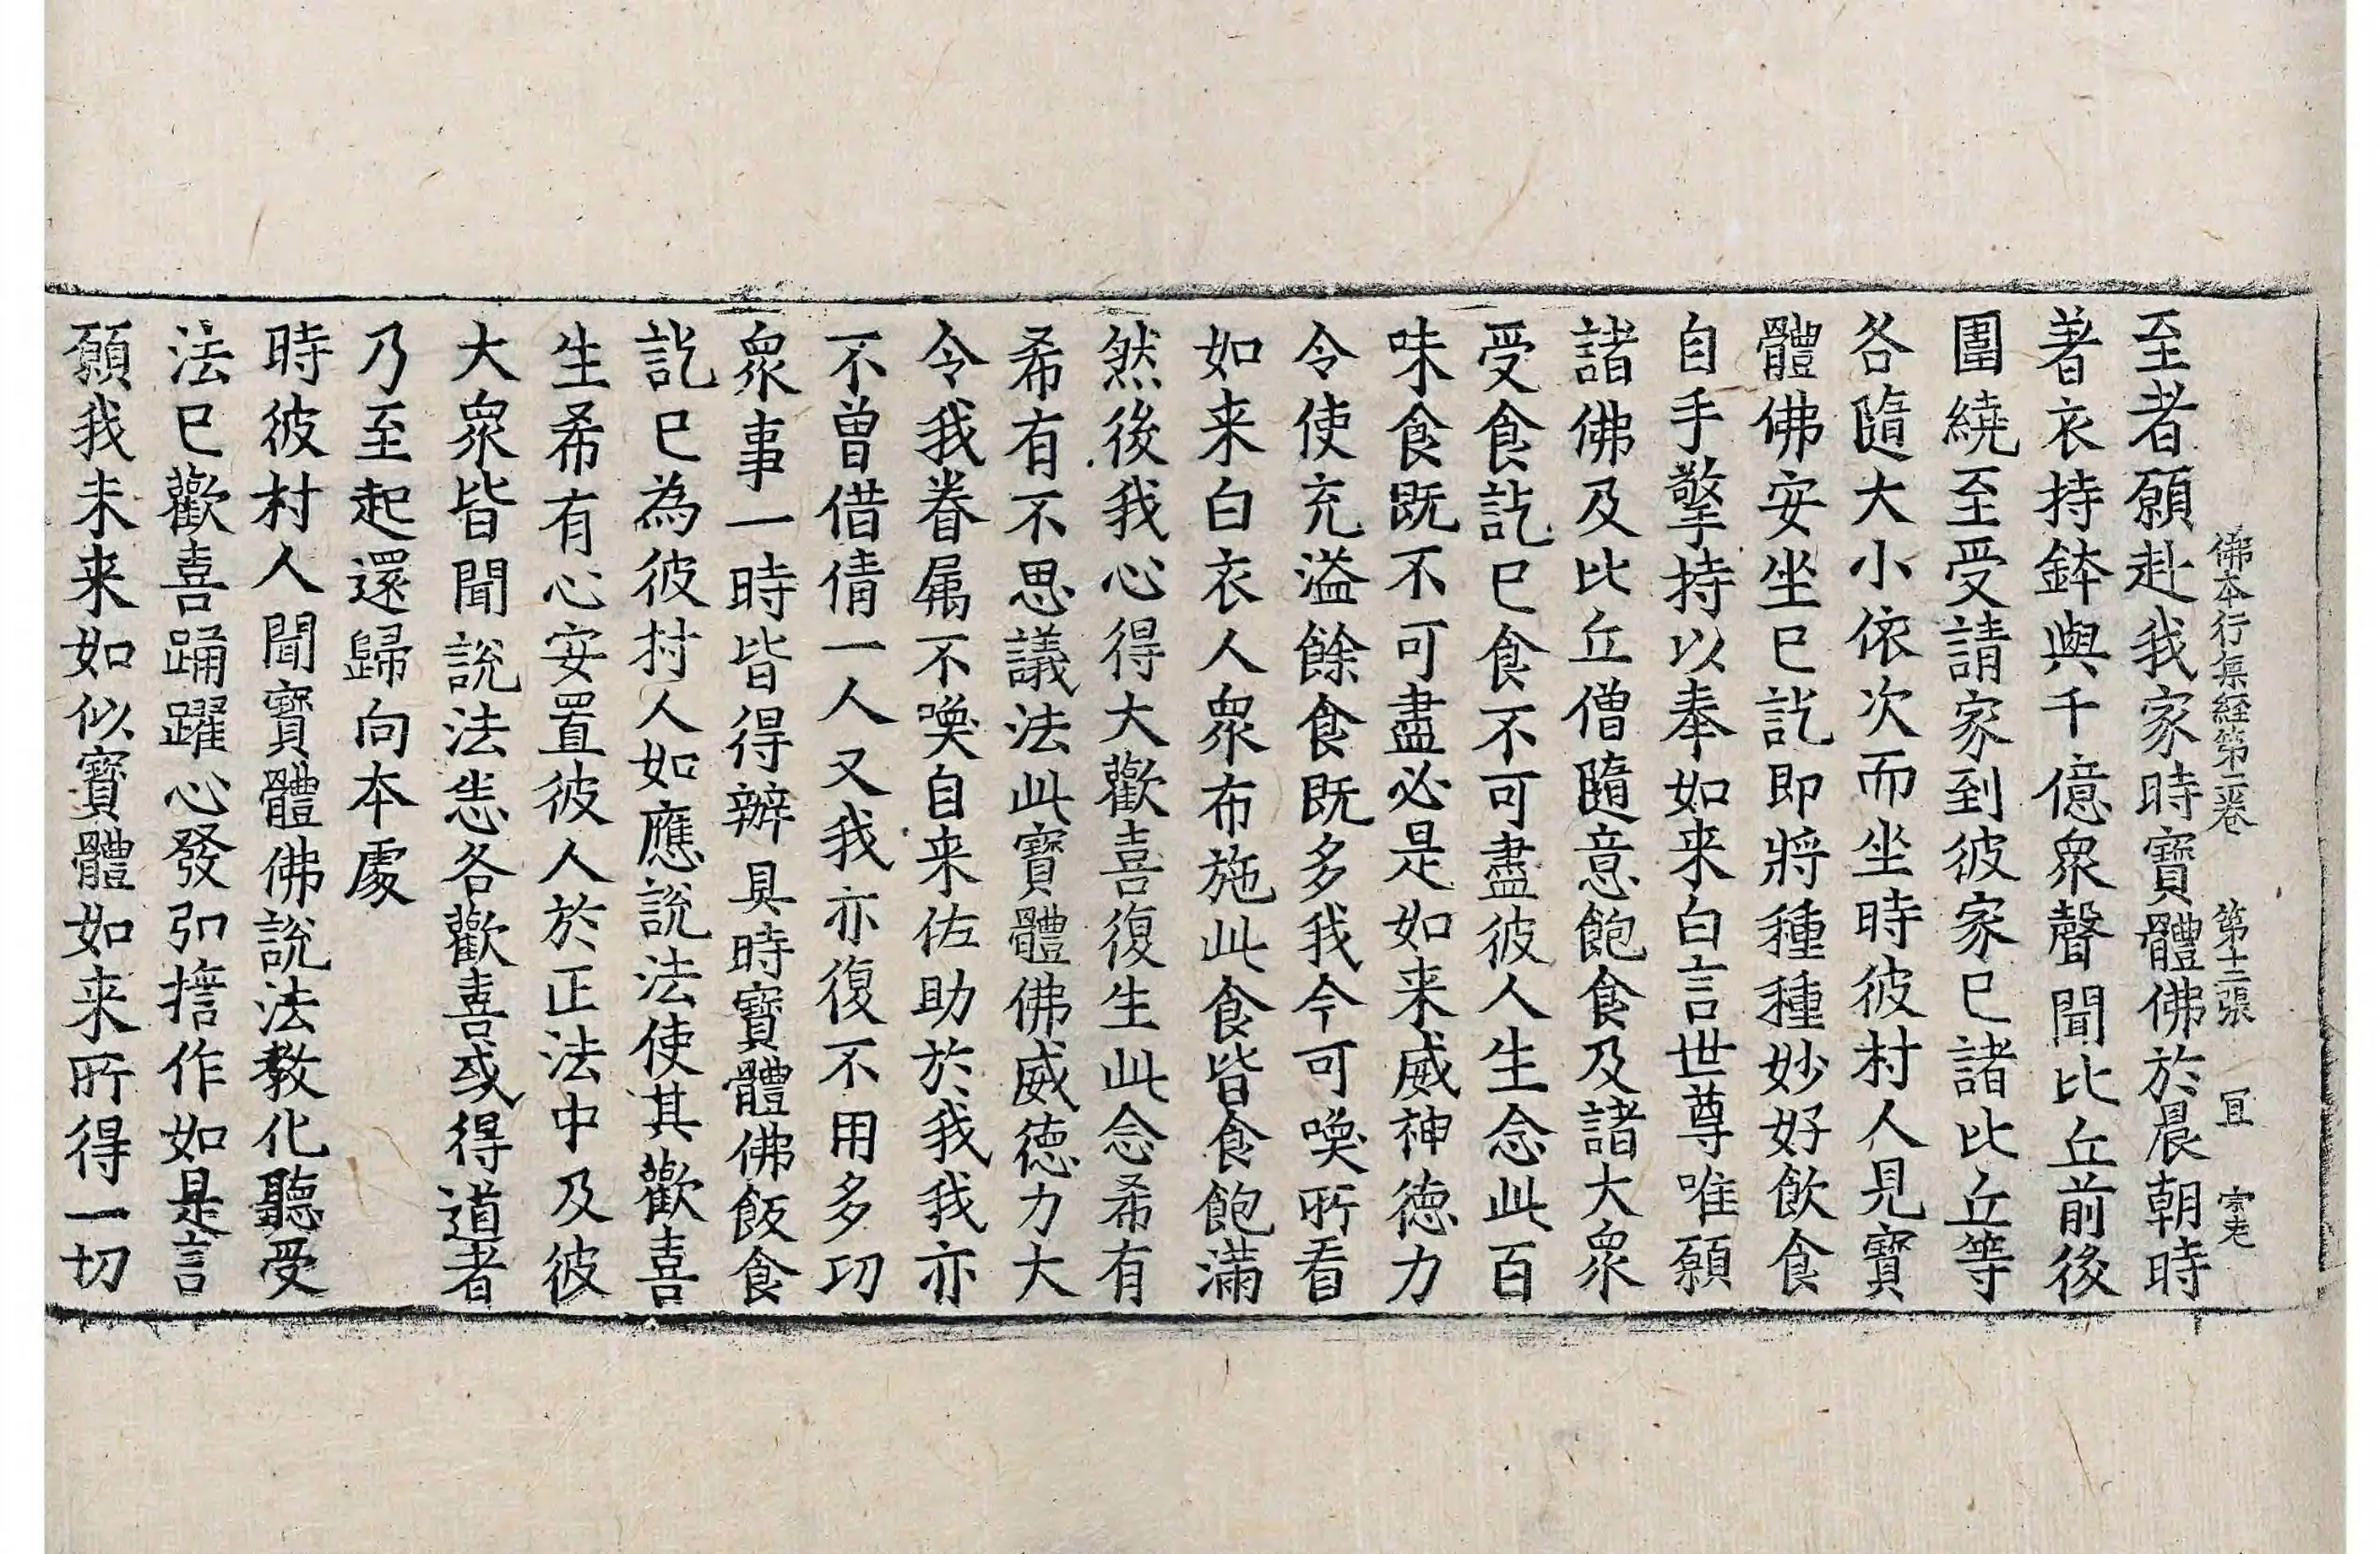 佛本行集経第二卷　第十二張　冝　宗老
至者願赴我家時寳體佛於晨朝時
著衣持鉢與千億衆聲聞比丘前後
圍繞至受請家到彼家已諸比丘等
各隨大小依次而坐時彼村人見寳
體佛安坐已訖即將種種妙好飲食
自手擎持以奉如来白言世尊唯願
諸佛及比丘僧隨意飽食及諸大衆
受食訖已食不可盡彼人生念此百
味食既不可盡必是如来威神德力
令使充溢餘食既多我今可喚所看
如来白衣人衆布施此食皆食飽滿
然後我心得大歡喜復生此念希有
希有不思議法此寳體佛威徳力大
令我眷屬不喚自来佐助於我我亦
不曾借倩一人又我亦復不用多功
衆事一時皆得辦具時寳體佛飯食
訖已為彼村人如應說法使其歡喜
生希有心安置彼人於正法中及彼
大衆皆聞說法悉各歡喜或得道者
乃至起還歸向本處
時彼村人聞寳體佛說法教化聽受
法已歡喜踊躍心發弘擔作如是言
願我未来如似寳體如来所得一切